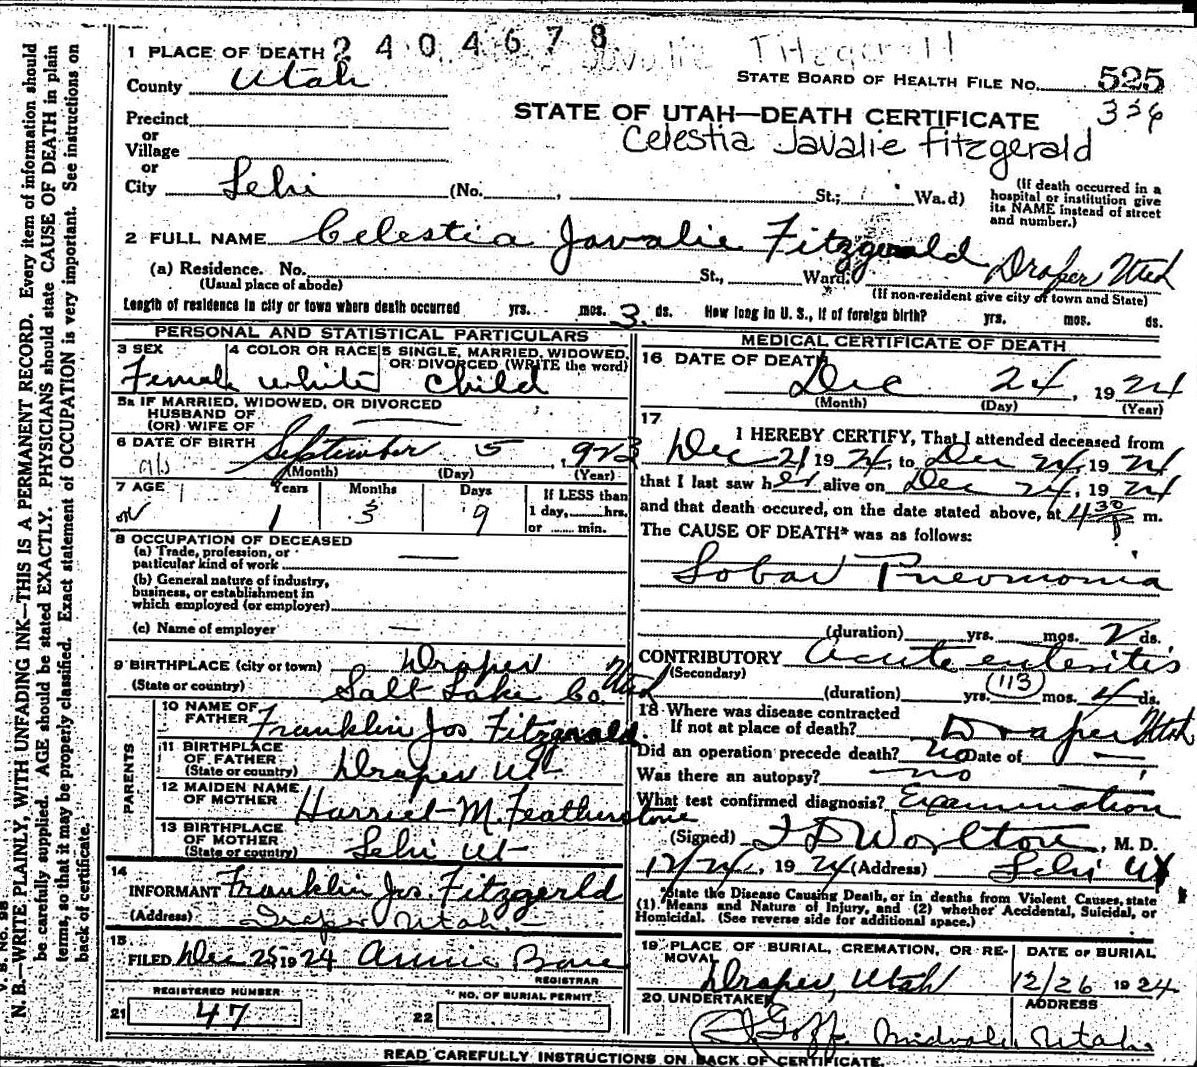 1 PLACE OF DEATH 2404678 Javalie Fitzgerald
County Utah
STATE BOARD OF HEALTH FILE No. 525
336
STATE OF UTAH—DEATH CERTIFICATE
Celestia Javalie Fitzgerald
Precinct
or
Village
or
City Lehi (No. , St.; Ward)
(If death occurred in a hospital or institution give its NAME instead of street and number.)
2 FULL NAME Celestia Javalie Fitzgerald
(a) Residence. No. St., Ward. Draper Utah
(Usual place of abode) (If non-resident give city or town and State)
Length of residence in city or town where death occurred yrs. mos. 3 ds. How long in U. S., if of foreign birth? yrs. mos. ds.
PERSONAL AND STATISTICAL PARTICULARS
3 SEX 4 COLOR OR RACE 5 SINGLE, MARRIED, WIDOWED, OR DIVORCED (WRITE the word)
Female white child
5a IF MARRIED, WIDOWED, OR DIVORCED
HUSBAND OF
(OR) WIFE OF
6 DATE OF BIRTH September 5, 1923
(Month) (Day) (Year)
7 AGE Years Months Days If LESS than
1 3 9 1 day, hrs.
or min.
8 OCCUPATION OF DECEASED
(a) Trade, profession, or
particular kind of work
(b) General nature of industry,
business, or establishment in
which employed (or employer)
(c) Name of employer
9 BIRTHPLACE (city or town) Draper
(State or country) Salt Lake Co. Utah
PARENTS
10 NAME OF FATHER Franklin Jos. Fitzgerald
11 BIRTHPLACE OF FATHER (State or country) Draper Ut
12 MAIDEN NAME OF MOTHER Harriet M. Featherstone
13 BIRTHPLACE OF MOTHER (State or country) Lehi Ut
14
INFORMANT Franklin Jos. Fitzgerld
(Address) Draper Utah
15
FILED Dec 25 1924 Annie
REGISTRAR
REGISTERED NUMBER
21 47
NO. OF BURIAL PERMIT
22
MEDICAL CERTIFICATE OF DEATH
16 DATE OF DEATH
Dec 24, 1924
(Month) (Day) (Year)
17
I HEREBY CERTIFY, That I attended deceased from
Dec 21 1924, to Dec 24, 1924
that I last saw her alive on Dec 24, 1924
and that death occured, on the date stated above, at 4 30 P m.
The CAUSE OF DEATH* was as follows:
Lobar Pneumonia
(duration) yrs. mos. 2 ds.
CONTRIBUTORY Acute enteritis
(Secondary) 113
(duration) yrs. mos. 4 ds.
18 Where was disease contracted
If not at place of death? Draper Utah
Did an operation precede death? no Date of
Was there an autopsy? no
What test confirmed diagnosis? Examination
(Signed) F D Worlton, M. D.
12/24, 1924 (Address) Lehi Ut
*State the Disease Causing Death, or in deaths from Violent Causes, state
(1) Means and Nature of Injury, and (2) whether Accidental, Suicidal, or
Homicidal. (See reverse side for additional space.)
19 PLACE OF BURIAL, CREMATION, OR REMOVAL DATE OF BURIAL
Draper, Utah 12/26 1924
20 UNDERTAKER ADDRESS
Goff Midvale Utah
READ CAREFULLY INSTRUCTIONS ON BACK OF CERTIFICATE.
V. S. No. 98
N. B.—WRITE PLAINLY, WITH UNFADING INK—THIS IS A PERMANENT RECORD. Every item of information should
be carefully supplied. AGE should be stated EXACTLY. PHYSICIANS should state CAUSE OF DEATH in plain
terms, so that it may be properly classified. Exact statement of OCCUPATION is very important. See instructions on
back of certificate.